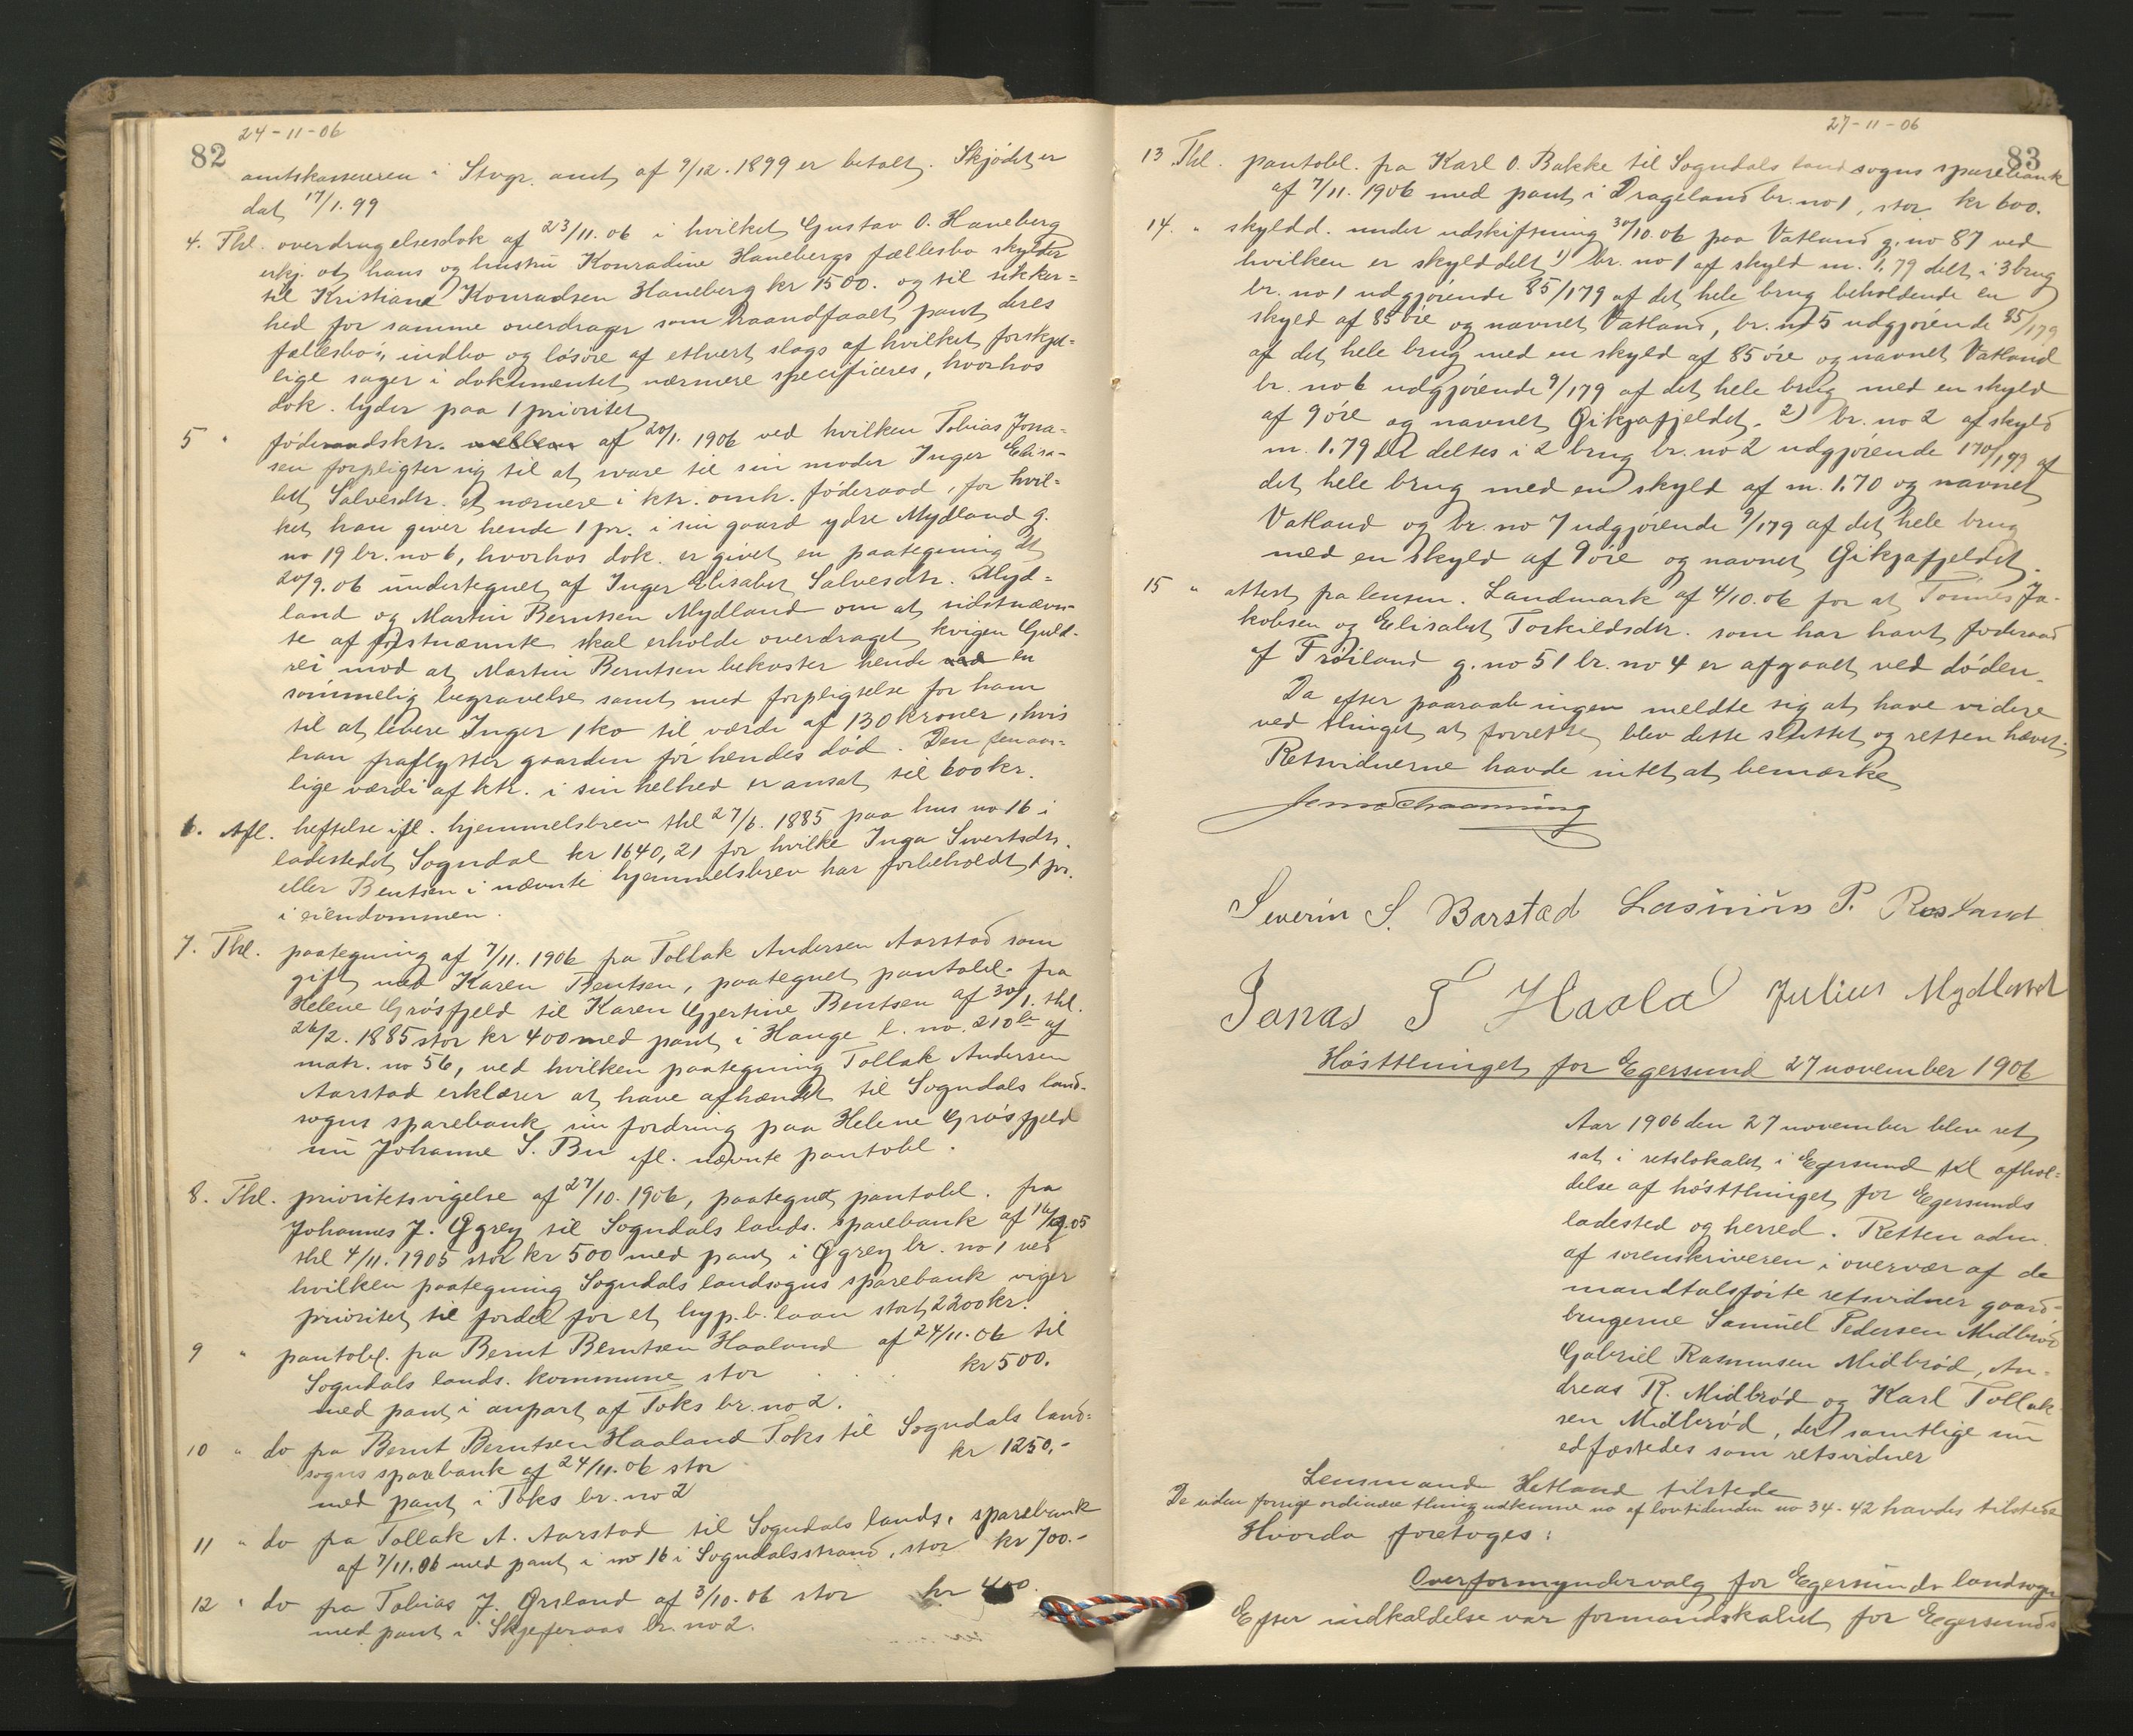 24-11-06
82
amtskassereren i Stvgr. amt af 9/12. 1899 er betalt. Skjødet er
dat 17/1. 99
4. Thl. overdragelsesdok af 23/11. 06 i hvilket Gustav O. Haneberg
erkj. at hans og hustru Konradine Hanebergs fællesbo skylder
til Kristiane Konradsen Haneberg kr 1500. og til sikker=
hed for samme overdrager som haandfaaet pant deres
fællesbo's indbo og løsøre af ethvert slags af hvilket forskjel=
lige sager i dokumentet nærmere specificeres, hvorhos
dok. lyder paa 1 prioritet
5 " føderaadsktr. mellem af 20/1. 1906 ved hvilken Tobias Jona=
sen forpligter sig til at svare til sin moder Inger Elisa-
bet Salvesdtr. et nærmere i ktr. omh. føderaad, for hvil=
ket han giver hende 1 pr. i sin gaard ydre Mydland g.
no 19 br. no 6, hvorhos dok. er givet en paategning dt
20/9. 06 undertegnet af Inger Elisabet Salvesdtr. Myd=
land og Martin Berntsen Mydland om at sidstnævn-
te af førstnævnte skal erholde overdraget kvigen Guld-
rei mod at Martin Berntsen bekoster hende ved en
sømmelig begravelse samt med forpligtelse for ham
til at levere Inger 1 ko til værdi af 130 kroner, hvis
han fraflytter gaarden før hendes død. Den femaar=
lige værdi af ktr. i sin helhed er ansat til 600 kr.
6. Afl. heftelse ifl. hjemmelsbrev thl 27/6. 1885 paa hus no 16 i
ladestedet Sogndal kr 1640,21 for hvilke Inga Sivertsdtr.
eller Bentsen i nævnte hjemmelsbrev har forbeholdt 1 pr.
i eiendommen.
7. Thl. paategning af 7/11. 1906 fra Tollak Andersen Aarstad som
gift med Karen Bentsen, paategnet pantobl. fra
Helene Grøsfjeld til Karen Gjertine Bentsen af 30/1. thl.
26/2. 1885 stor kr 400 med pant i Hauge l. no. 210 b af
matr. no 56, ved hvilken paategning Tollak Andersen
Aarstad erklærer at have afhændet til Sogndals land-
sogns sparebank sin fordring paa Helene Grøsfjeld
nu Johanne S. Bu ifl. nævnte pantobl.
8. Thl. prioritetsvigelse af 27/10. 1906, paategnet pantobl. fra
Johannes J. Ggrey til Sogndals lands. sparebank af 05
thl 4/11. 1905 stor kr 500 med pant i Ggrey br. no 1 ved
hvilken paategning Sogndals landsogns sparebank viger
prioritet til fordel for et hyp.b. laan stort 2200 kr.
9 " pantobl. fra Bernt Berntsen Haaland af 24/11. 06 til
Sogndals lands. kommune stor . . . kr 500.
med pant i anpart af Toks br. no 2.
10 " do fra Bernt Berntsen Haaland Toks til Sogndals land=
sogns sparebank af 24/11. 06 stor kr 1250.-
med pant i Toks br. no 2
11 " do fra Tollak A. Aarstad til Sogndals lands. sparebank
af 7/11. 06 med pant i no 16 i Sogndalsstrand, stor kr 700.-
12 " do fra Tobias J. Ørsland af 3/10. 06 stor kr 400.
med pant i Skjeferaas br. no 2.
27-11-06
83
13 Thl. pantobl. fra Karl O. Bakke til Sogndals landsogns sparebank
af 7/11. 1906 med pant i Drageland br. no 1, stor kr 600.
14. " skyldd. under udskiftning 30/10. 06 paa Vatland g. no 87 ved
hvilken er skylddelt 1) br. no 1 af skyld m. 1,79 delt i 3 brug
br. no 1 udgjørende 85/179 af det hele brug beholdende en
skyld af 85 øre og navnet Vatland, br. no 5 udgjørende 85/179
af det hele brug med en skyld af 85 øre og navnet Vatland
br. no 6 udgjørende 9/179 af det hele brug med en skyld
af 9 øre og navnet Gikjafjeldet. 2) br. no 2 af skyld
m. 1.79 deltes i 2 brug br. no 2 udgjørende 170/179 af
det hele brug med en skyld af m. 1.70 og navnet
Vatland og br. no 7 udgjørende 9/179 af det hele brug
med en skyld af 9 øre og navnet Gikjafjeldet.
15 " attest fra lensm. Landmark af 4/10. 06 for at Tønnes Ja-
kobsen og Elisabet Torkildsdtr. som har havt føderaad
af Frøiland g. no 51 br. no 4 er afgaaet ved døden.
Da efter paaraab ingen meldte sig at have videre
ved thinget at forrette, blev dette sluttet og retten hævet.
Retsvidnerne havde intet at bemærke
Severin S. Barstad Rasmus P. Rosland
Jonas T Haaland Julius Mydland
Høstthinget for Egersund 27 november 1906
Aar 1906 den 27 november blev ret
sat i retslokalet i Egersund til afhol=
delse af høstthinget for Egersunds
ladested og herred. Retten adm.
af sorenskriveren i overvær af de
mandtalsførte retsvidner gaard-
brugerne Samuel Pedersen Midbrød
Gabriel Rasmusen Midbrød, An-
dreas R. Midbrød og Karl Tollak
sen Midbrød, der samtlige nu
edfæstedes som retsvidner
Lensmand Hetland tilstede
De siden forrige ordinære thing udkomne no af lovtidenden no 34-42 havdes tilstede
Hvorda foretoges:
Overformyndervalg for Egersunds landsogn
Efter indkaldelse var formandskabet for Egersunds